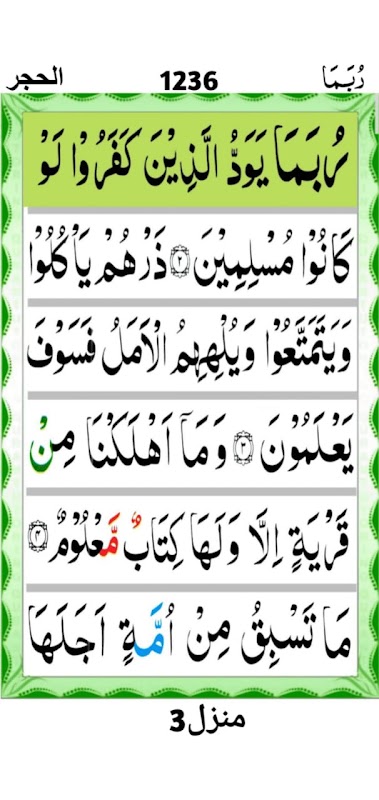 رُبَمَا 1236 الحجر
رُبَمَا يَوَدُّ الَّذِيْنَ كَفَرُوْا لَوْ
كَانُوْا مُسْلِمِيْنَ ۝۲ ذَرْهُمْ يَاْكُلُوْا
وَيَتَمَتَّعُوْا وَيُلْهِهِمُ الْاَمَلُ فَسَوْفَ
يَعْلَمُوْنَ ۝۳ وَمَاۤ اَهْلَكْنَا مِنْ
قَرْيَةٍ اِلَّا وَلَهَا كِتَابٌ مَّعْلُوْمٌ ۝۴
مَا تَسْبِقُ مِنْ اُمَّةٍ اَجَلَهَا
منزل3